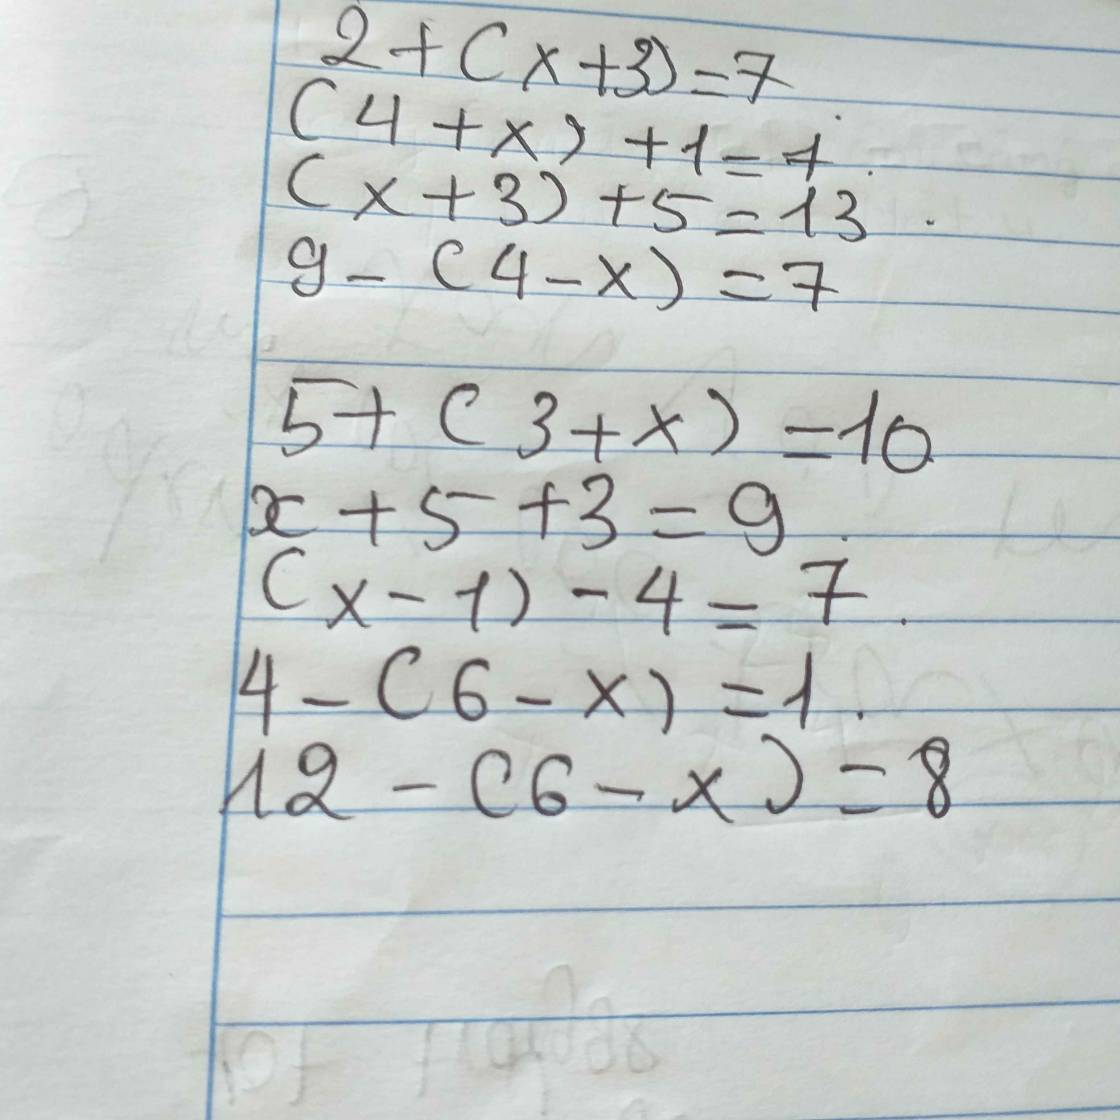 2+(x+3)=7
(4+x)+1=7.
(x+3)+5=13.
9-(4-x)=7
5+(3+x)=10
x+5+3=9.
(x-1)-4=7.
4-(6-x)=1.
12-(6-x)=8